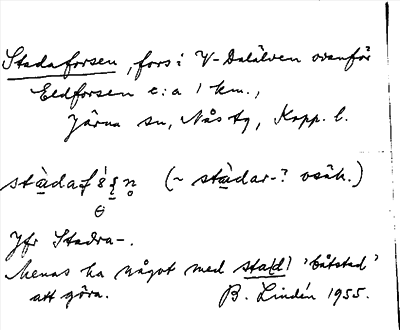 Stadaforsen, fors i V-Dalälven ovanför
Eldforsen c:a 1 km.,
Järna sn, Nås tg, Kopp. l.
stàdaf (~ stàdar-? osäk.)
Jfr Stadra-.
Menas ha något med sta(d) 'båtstad'
att göra. B. Lindén 1955.